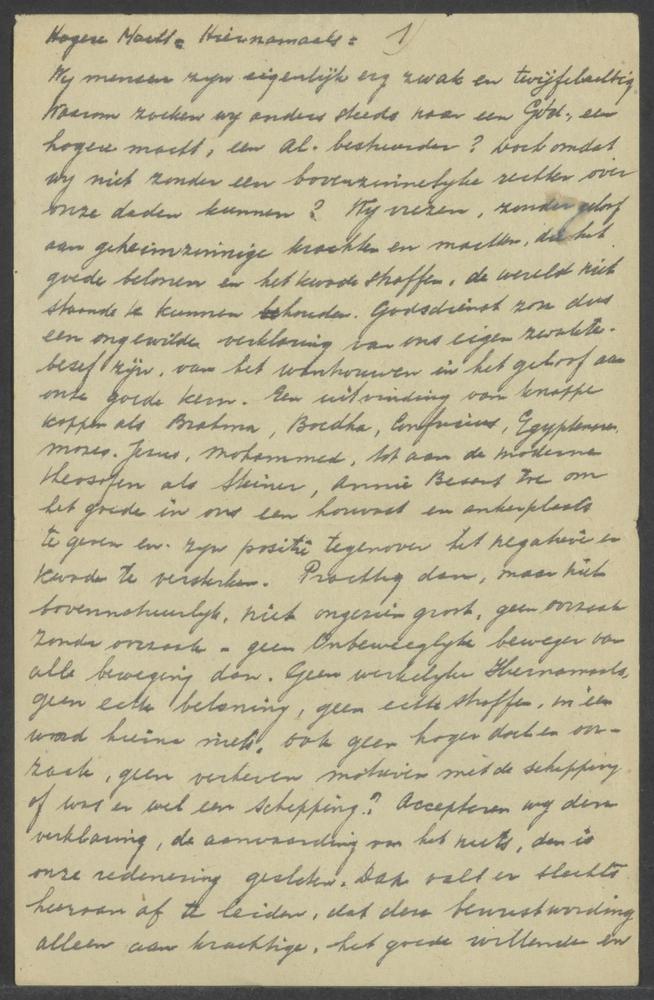 Hogere Macht = Hiernamaals = 1)
Wy mensen zyn eigenlijk erg zwak en twijfelachtig
Waarom zoeken wy anders steeds naar een God, een
hogere macht, een al-bestuurder? Toch omdat
wy niet zonder een bovenzinnelyke rechter over
onze daden kunnen? Wy vrezen, zonder geloof
aan geheimzinnige krachten en machten, die het
goede belonen en het kwade straffen, de wereld niet
staande te kunnen behouden. Godsdienst zou dus
een ongewilde verklaring van ons eigen zwakte-
besef zijn, van het wantrouwen in het geloof aan
onze goede kern. Een uitvinding van knappe
koppen als Brahma, Boedha, Confucius, Egyptenaren,
Mozes, Jesus, Mohammed, tot aan de moderne
theosofen als Steiner, Annie Besant toe om
het goede in ons een houvast en ankerplaats
te geven en zyn positie tegenover het negatieve en
kwade te versterken. Prachtig dan, maar niet
bovennatuurlyk, niet ongezien groot, geen oorzaak
zonder oorzaak - geen Onbeweeglyke beweger van
alle beweging dan. Geen werkelyke Hiernamaals,
geen echte beloning, geen echte straffen, in één
woord hierna niets, ook geen hoger doel en oor-
zaak, geen verheven motieven met de schepping
of was er wel een schepping? Accepteren wy deze
verklaring, de aanvaarding van het niets, dan is
onze redenering gesloten. Dan valt er slechts
hiervan af te leiden, dat deze bewustwording
alleen aan krachtige, het goede willende en